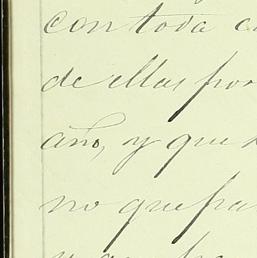 con toda
de ellas por
año, y que
no quepa
y que